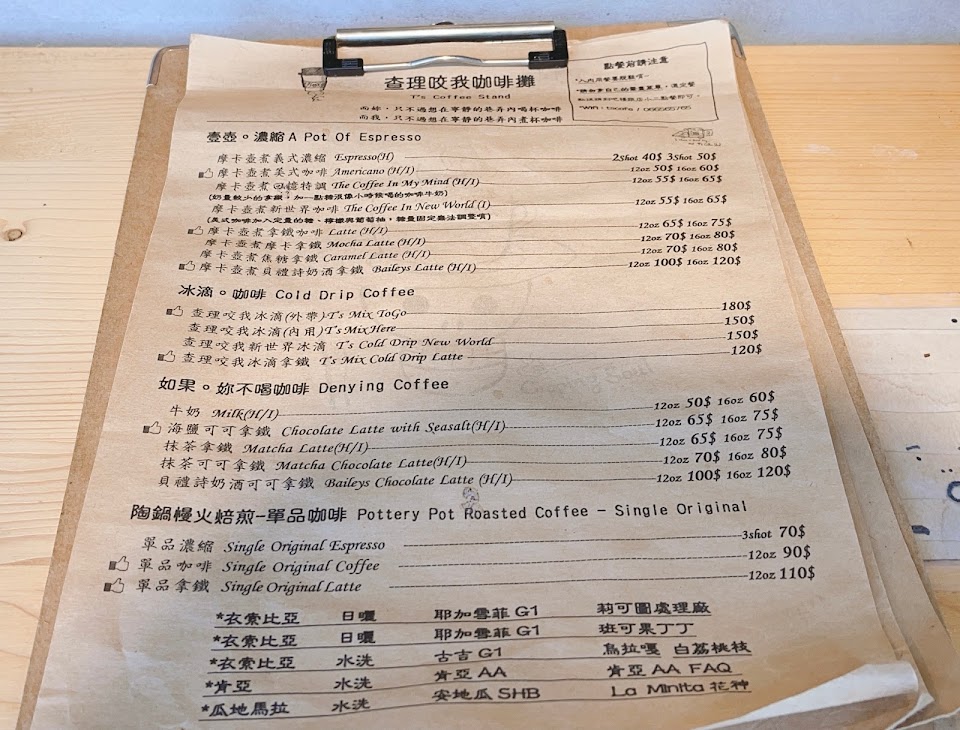 查理咬我咖啡攤
T's Coffee Stand
而妳，只不過想在寧靜的巷弄內喝杯咖啡
而我，只不過想在寧靜的巷弄內煮杯咖啡
點餐前請注意
壹壺。濃縮 A Pot Of Espresso
摩卡壺煮義式濃縮 Espresso(H) 2Shot 40$ 3Shot 50$
摩卡壺煮美式咖啡 Americano (H/I) 12oz 50$ 16oz 60$
摩卡壺煮@憶特調 The Coffee In My Mind (H/I) 12oz 55$ 16oz 65$
(奶量較少的拿鐵，加一點糖很像小時候喝的咖啡牛奶)
摩卡壺煮新世界咖啡 The Coffee In New World (I) 12oz 55$ 16oz 65$
(美式咖啡加入定量的糖、檸檬與葡萄柚，糖量固定無法調整唷)
摩卡壺煮拿鐵咖啡 Latte (H/I) 12oz 65$ 16oz 75$
摩卡壺煮摩卡拿鐵 Mocha Latte (H/I) 12oz 70$ 16oz 80$
摩卡壺煮焦糖拿鐵 Caramel Latte (H/I) 12oz 70$ 16oz 80$
摩卡壺煮貝禮詩奶酒拿鐵 Baileys Latte (H/I) 12oz 100$ 16oz 120$
冰滴。咖啡 Cold Drip Coffee
查理咬我冰滴(外帶) T's Mix ToGo 180$
查理咬我冰滴(內用) T's Mix Here 150$
查理咬我新世界冰滴 T's Cold Drip New World 150$
查理咬我冰滴拿鐵 T's Mix Cold Drip Latte 120$
如果。妳不喝咖啡 Denying Coffee
牛奶 Milk(H/I) 12oz 50$ 16oz 60$
海鹽可可拿鐵 Chocolate Latte with Seasalt(H/I) 12oz 65$ 16oz 75$
抹茶拿鐵 Matcha Latte(H/I) 12oz 65$ 16oz 75$
抹茶可可拿鐵 Matcha Chocolate Latte(H/I) 12oz 70$ 16oz 80$
貝禮詩奶酒可可拿鐵 Baileys Chocolate Latte (H/I) 12oz 100$ 16oz 120$
陶鍋慢火焙煎-單品咖啡 Pottery Pot Roasted Coffee - Single Original
單品濃縮 Single Original Espresso 3shot 70$
單品咖啡 Single Original Coffee 12oz 90$
單品拿鐵 Single Original Latte 12oz 110$
*衣索比亞 日曬 耶加雪菲 G1 莉可圖處理廠
*衣索比亞 日曬 耶加雪菲 G1 班可果丁丁
*衣索比亞 水洗 古吉 G1 烏拉嘎 白荔桃枝
*肯亞 水洗 肯亞 AA 肯亞 AA FAQ
*瓜地馬拉 水洗 安地瓜 SHB La Minita 花神